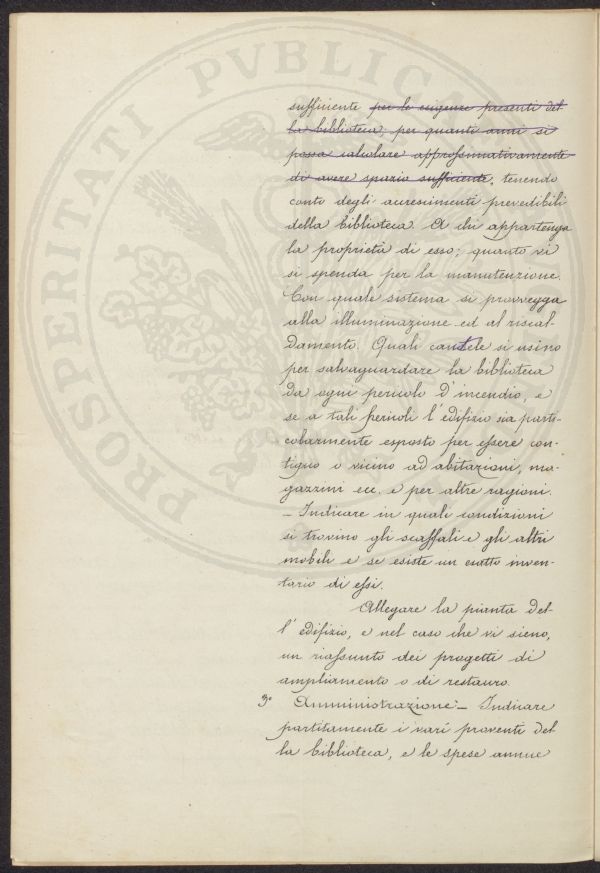 PROSPERITATI PVBLICAE
sufficiente per le esigenze presenti del-
la biblioteca; per quanti anni si
possa calcolare approssimativamente
di avere spazio sufficiente, tenendo
conto degli accrescimenti prevedibili
della biblioteca. A chi appartenga
la proprietà di esso; quanto vi
si spenda per la manutenzione.
Con quale sistema si provvegga
alla illuminazione ed al riscal-
damento. Quali cautele si usino
per salvaguardare la biblioteca
da ogni pericolo d'incendio, e
se a tali pericoli l'edifizio sia parti-
colarmente esposto per essere con-
tiguo o vicino ad abitazioni, ma-
gazzini ecc. e per altre ragioni.
– Indicare in quali condizioni
si trovino gli scaffali e gli altri
mobili e se esiste un esatto inven-
tario di essi.
Allegare la pianta del-
l'edifizio, e nel caso che vi sieno,
un riassunto dei progetti di
ampliamento o di restauro.
3° Amministrazione – Indicare
partitamente i varî proventi del-
la biblioteca, e le spese annue